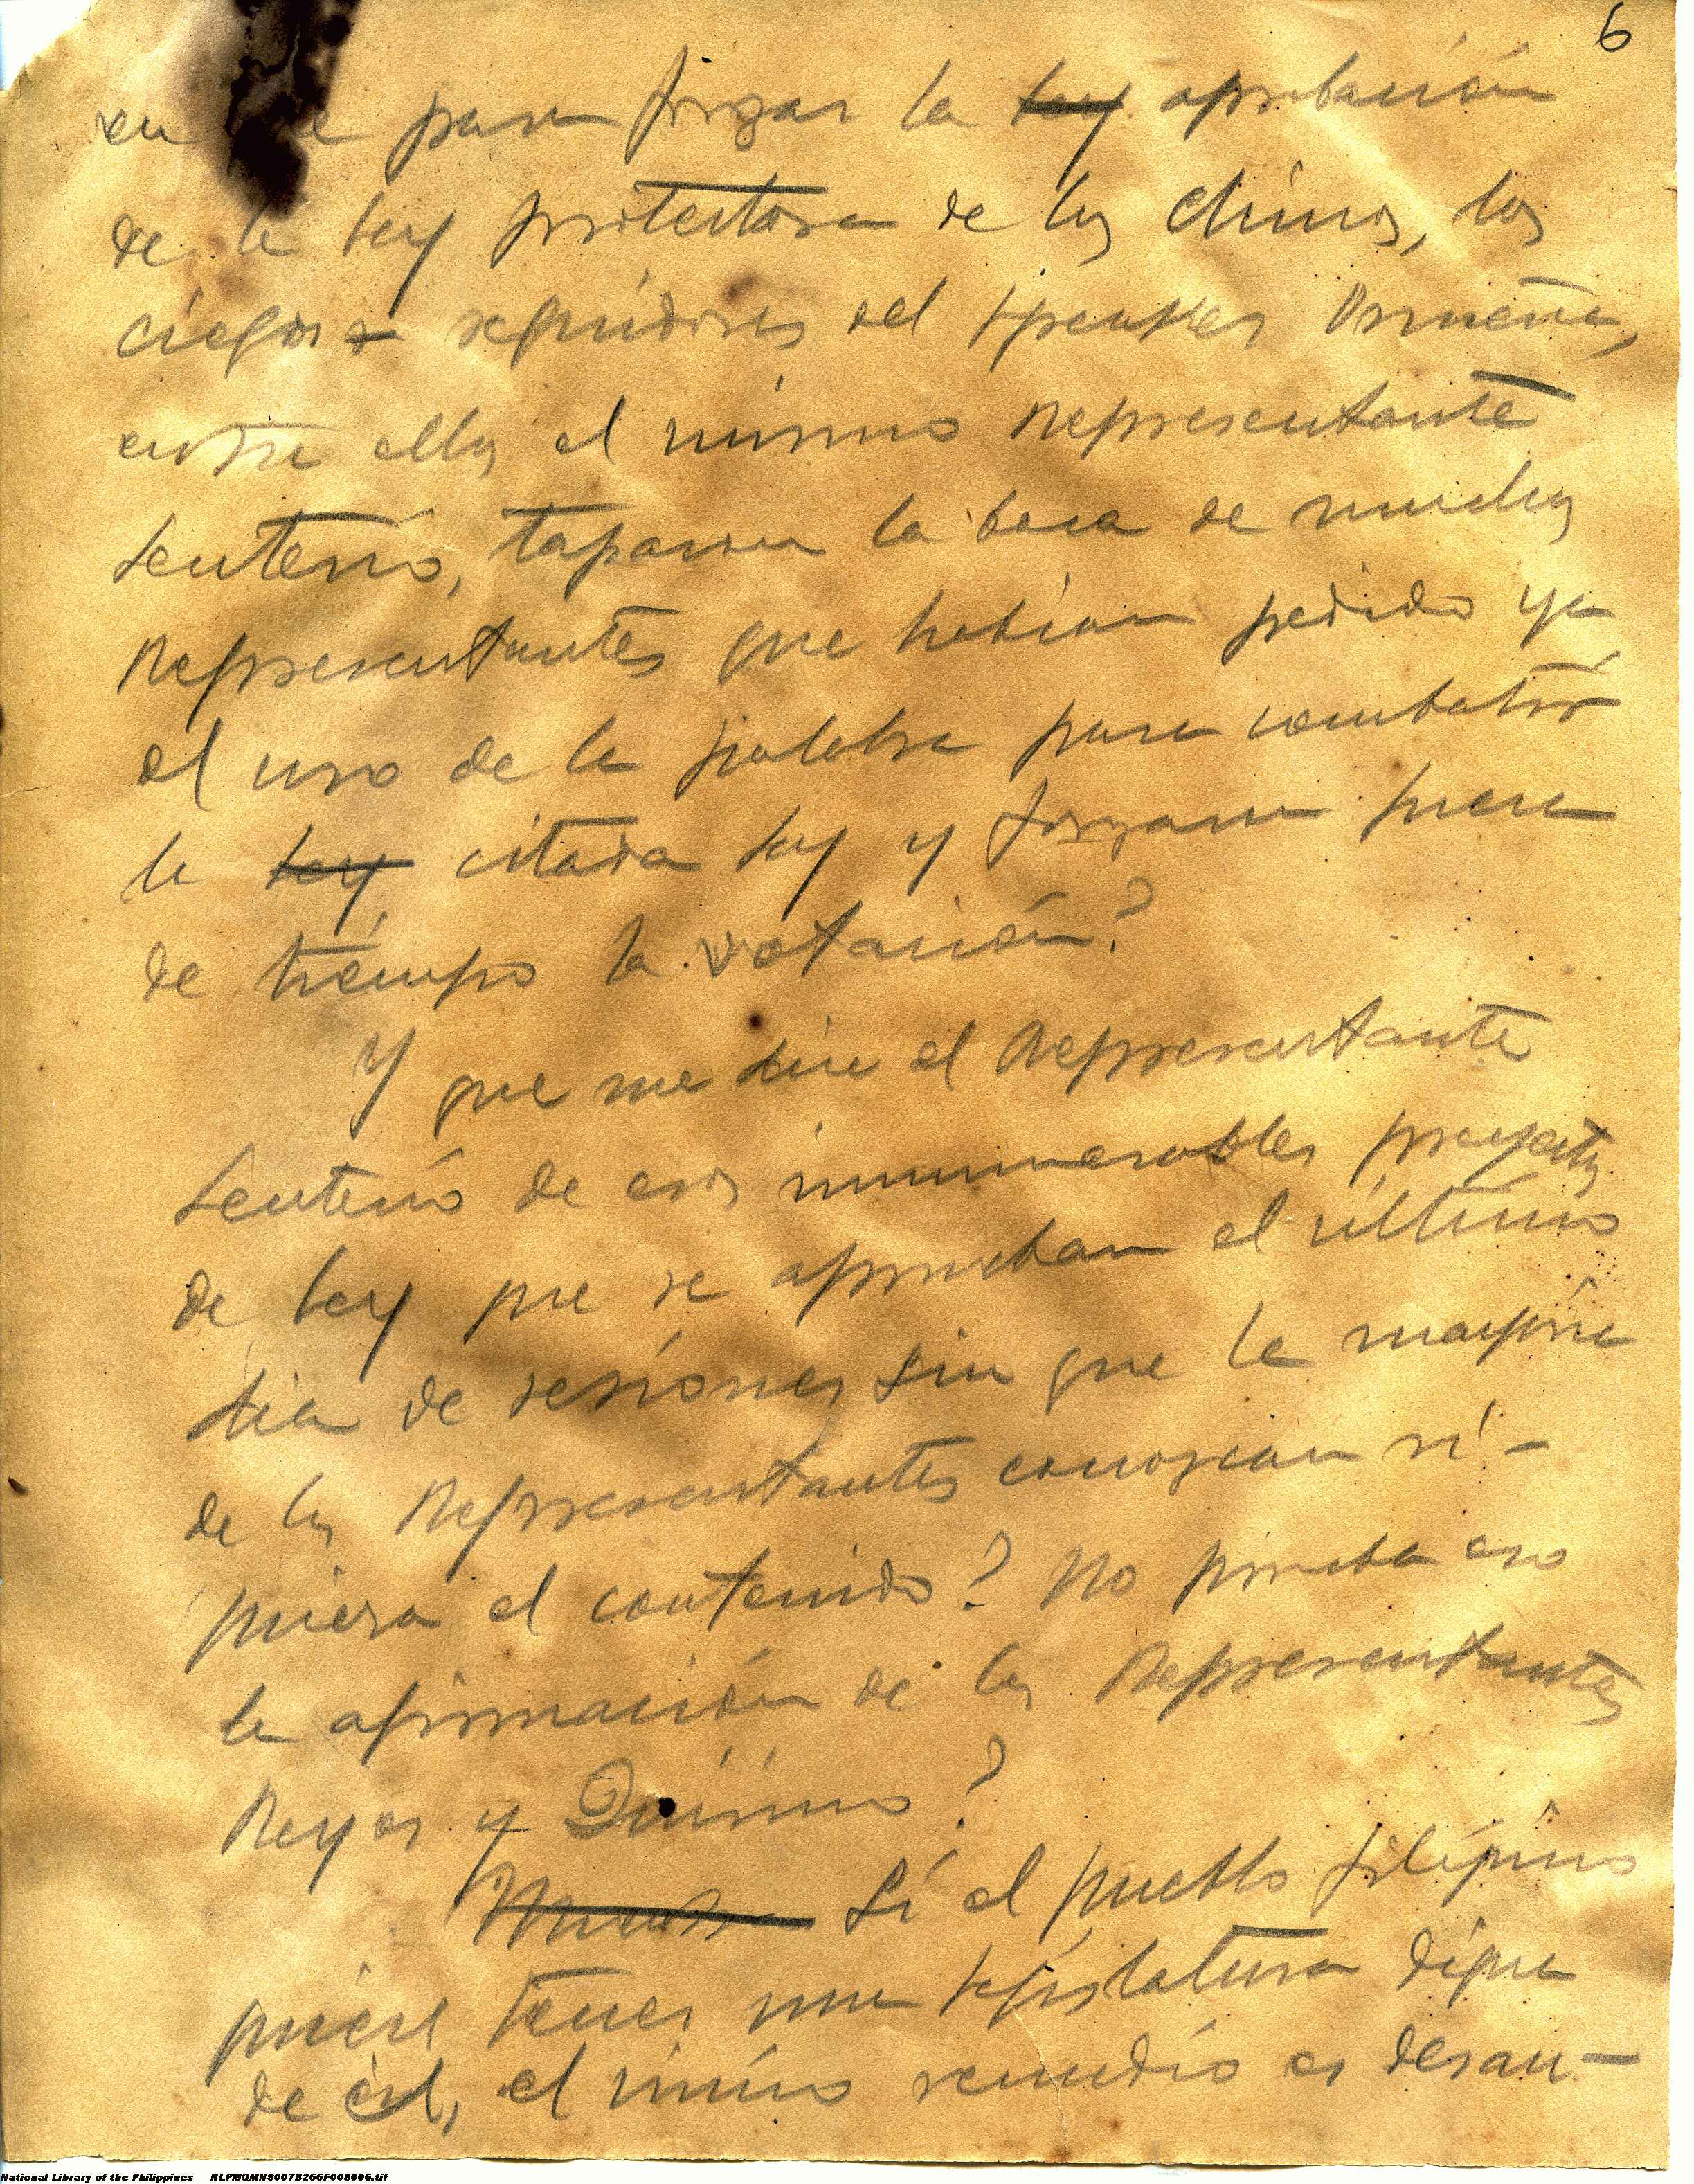 6
en e para forzar la ley aprobación
de la Ley protectora de los chinos, los
ciegos seguidores del Speaker Osmeña,
entre ellos el mismo Representante
Sentenó, taparon la boca de muchos
Representantes que habían pedido ya
el uso de la palabra para combatir
la Ley citada Ley y forzaron fuera
de tiempo la votación?
Y que me dice el Representante
Sentenó de esos innumerables proyectos
de Ley que se aprueban el último
dia de sesiones sin que la mayoría
de los Representantes conozcan si-
quiera el contenido? No prueba eso
la afirmación de los Representantes
Reyes y Quirino?
Si el pueblo filipino
quiere tener una legislatura digna
de él, el único remedio es desau-
National Library of the Philippines NLPMQMNS007B266F008006.tif